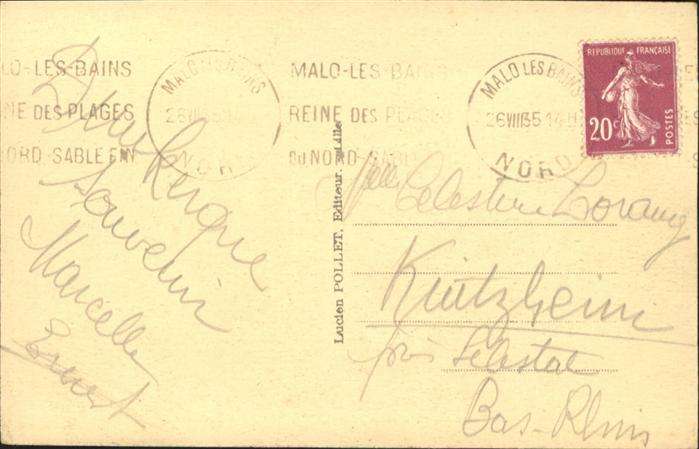 LO-LES-BAINS
NE DES PLAGES
NORD-SABLE FIN
MALO LES BAINS
NORD
MALO-LES-BAINS
REINE DES PLAGES
DU NORD-SABLE
MALO LES BAINS
26 VIII 35 14
NORD
REPUBLIQUE FRANÇAISE
20c
POSTES
Dunkerque
Souvenir
Marcelle
Ernest
Lucien POLLET, Editeur, Lille
Melle Celestine Lorang
Kintzheim
près Sélestat
Bas-Rhin